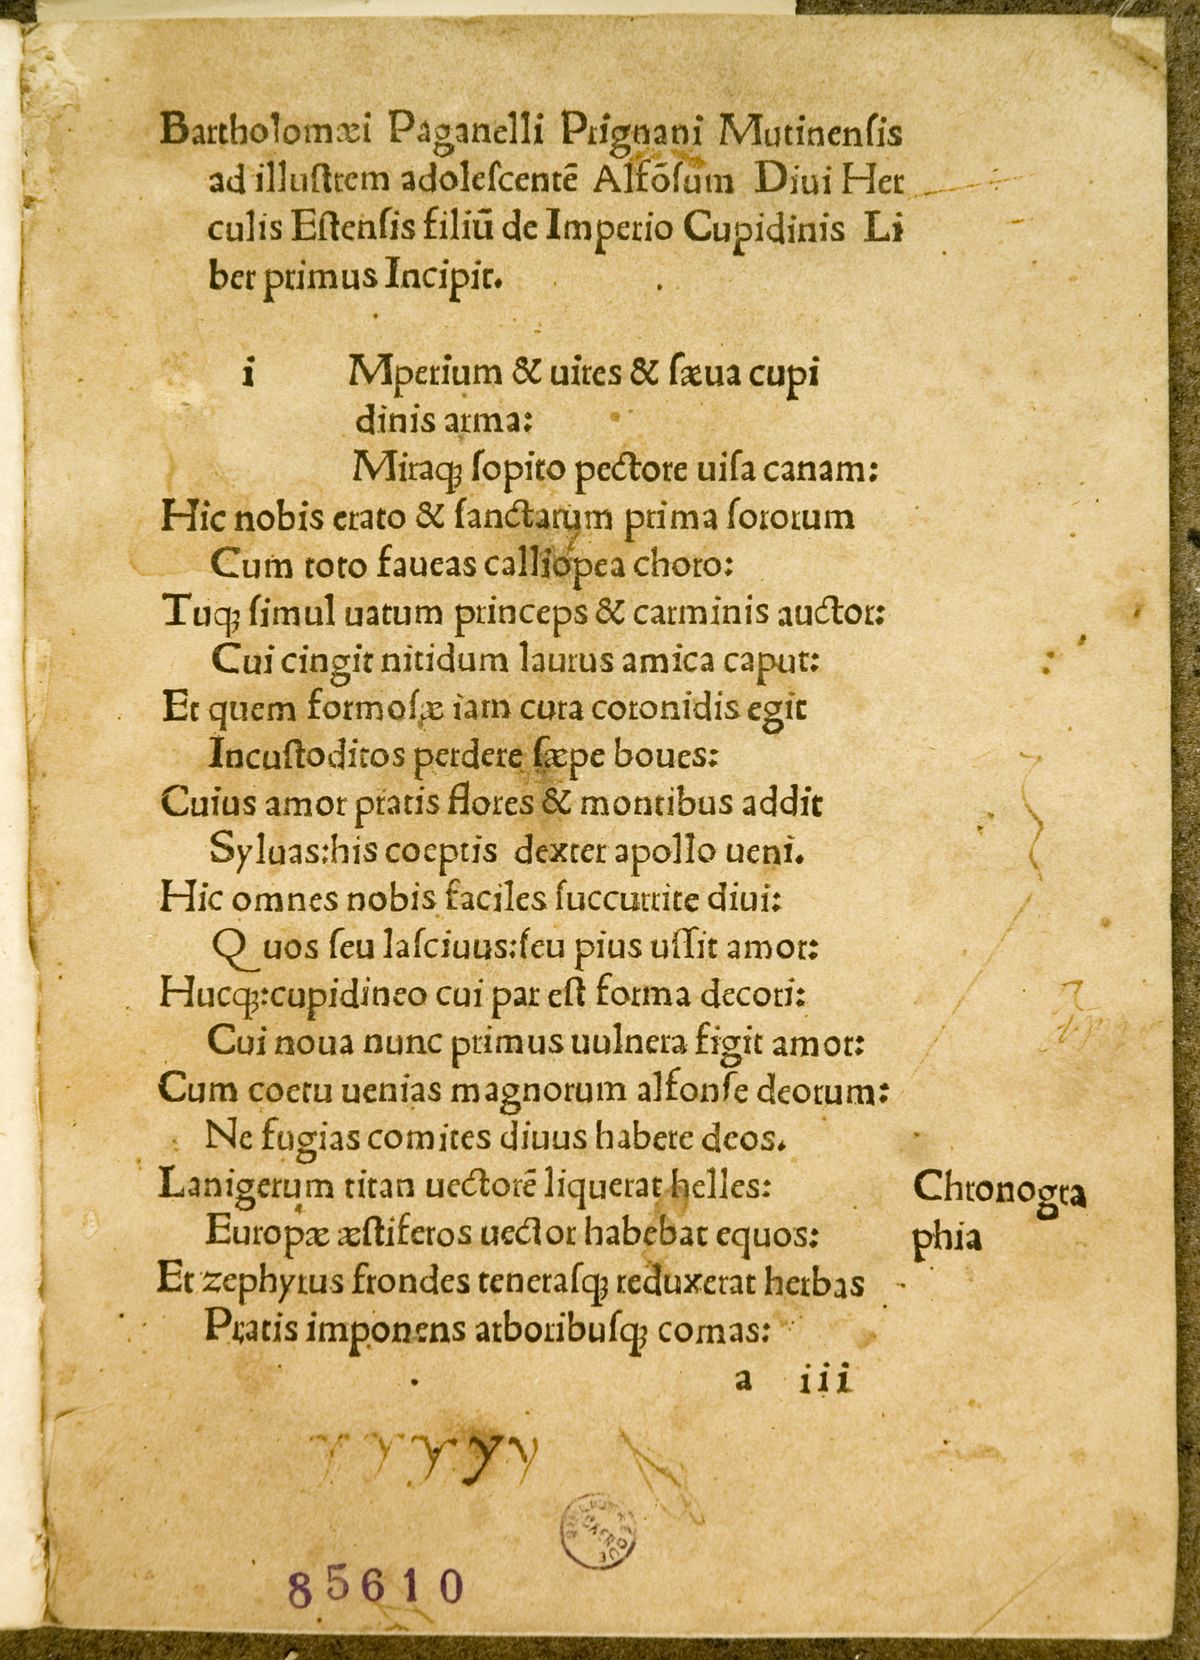 Bartholomæi Paganelli Prignani Mutinenſis
ad illuſtrem adoleſcentē Alfōſum Diui Her
culis Eſtenſis filiū de Imperio Cupidinis Li
ber primus Incipit.
i Mperium & uires & ſæua cupi
dinis arma:
Miraq; ſopito pectore uiſa canam:
Hic nobis erato & ſanctarum prima ſororum
Cum toto faueas calliopea choro:
Tuq; ſimul uatum princeps & carminis auctor:
Cui cingit nitidum laurus amica caput:
Et quem formoſæ iam cura coronidis egit
Incuſtoditos perdere ſæpe boues:
Cuius amor pratis flores & montibus addit
Syluas:his coeptis dexter apollo ueni.
Hic omnes nobis faciles ſuccurrite diui:
Q uos ſeu laſciuus:ſeu pius uſſit amor:
Hucq;:cupidineo cui par eſt forma decori:
Cui noua nunc primus uulnera figit amor:
Cum coetu uenias magnorum alfonſe deorum:
Ne fugias comites diuus habere deos.
Lanigerum titan uectorē liquerat helles:
Europæ æſtiferos uector habebat equos:
Et zephyrus frondes teneraſq; reduxerat herbas
Pratis imponens arboribuſq; comas:
Chronogra
phia
a iii
85610